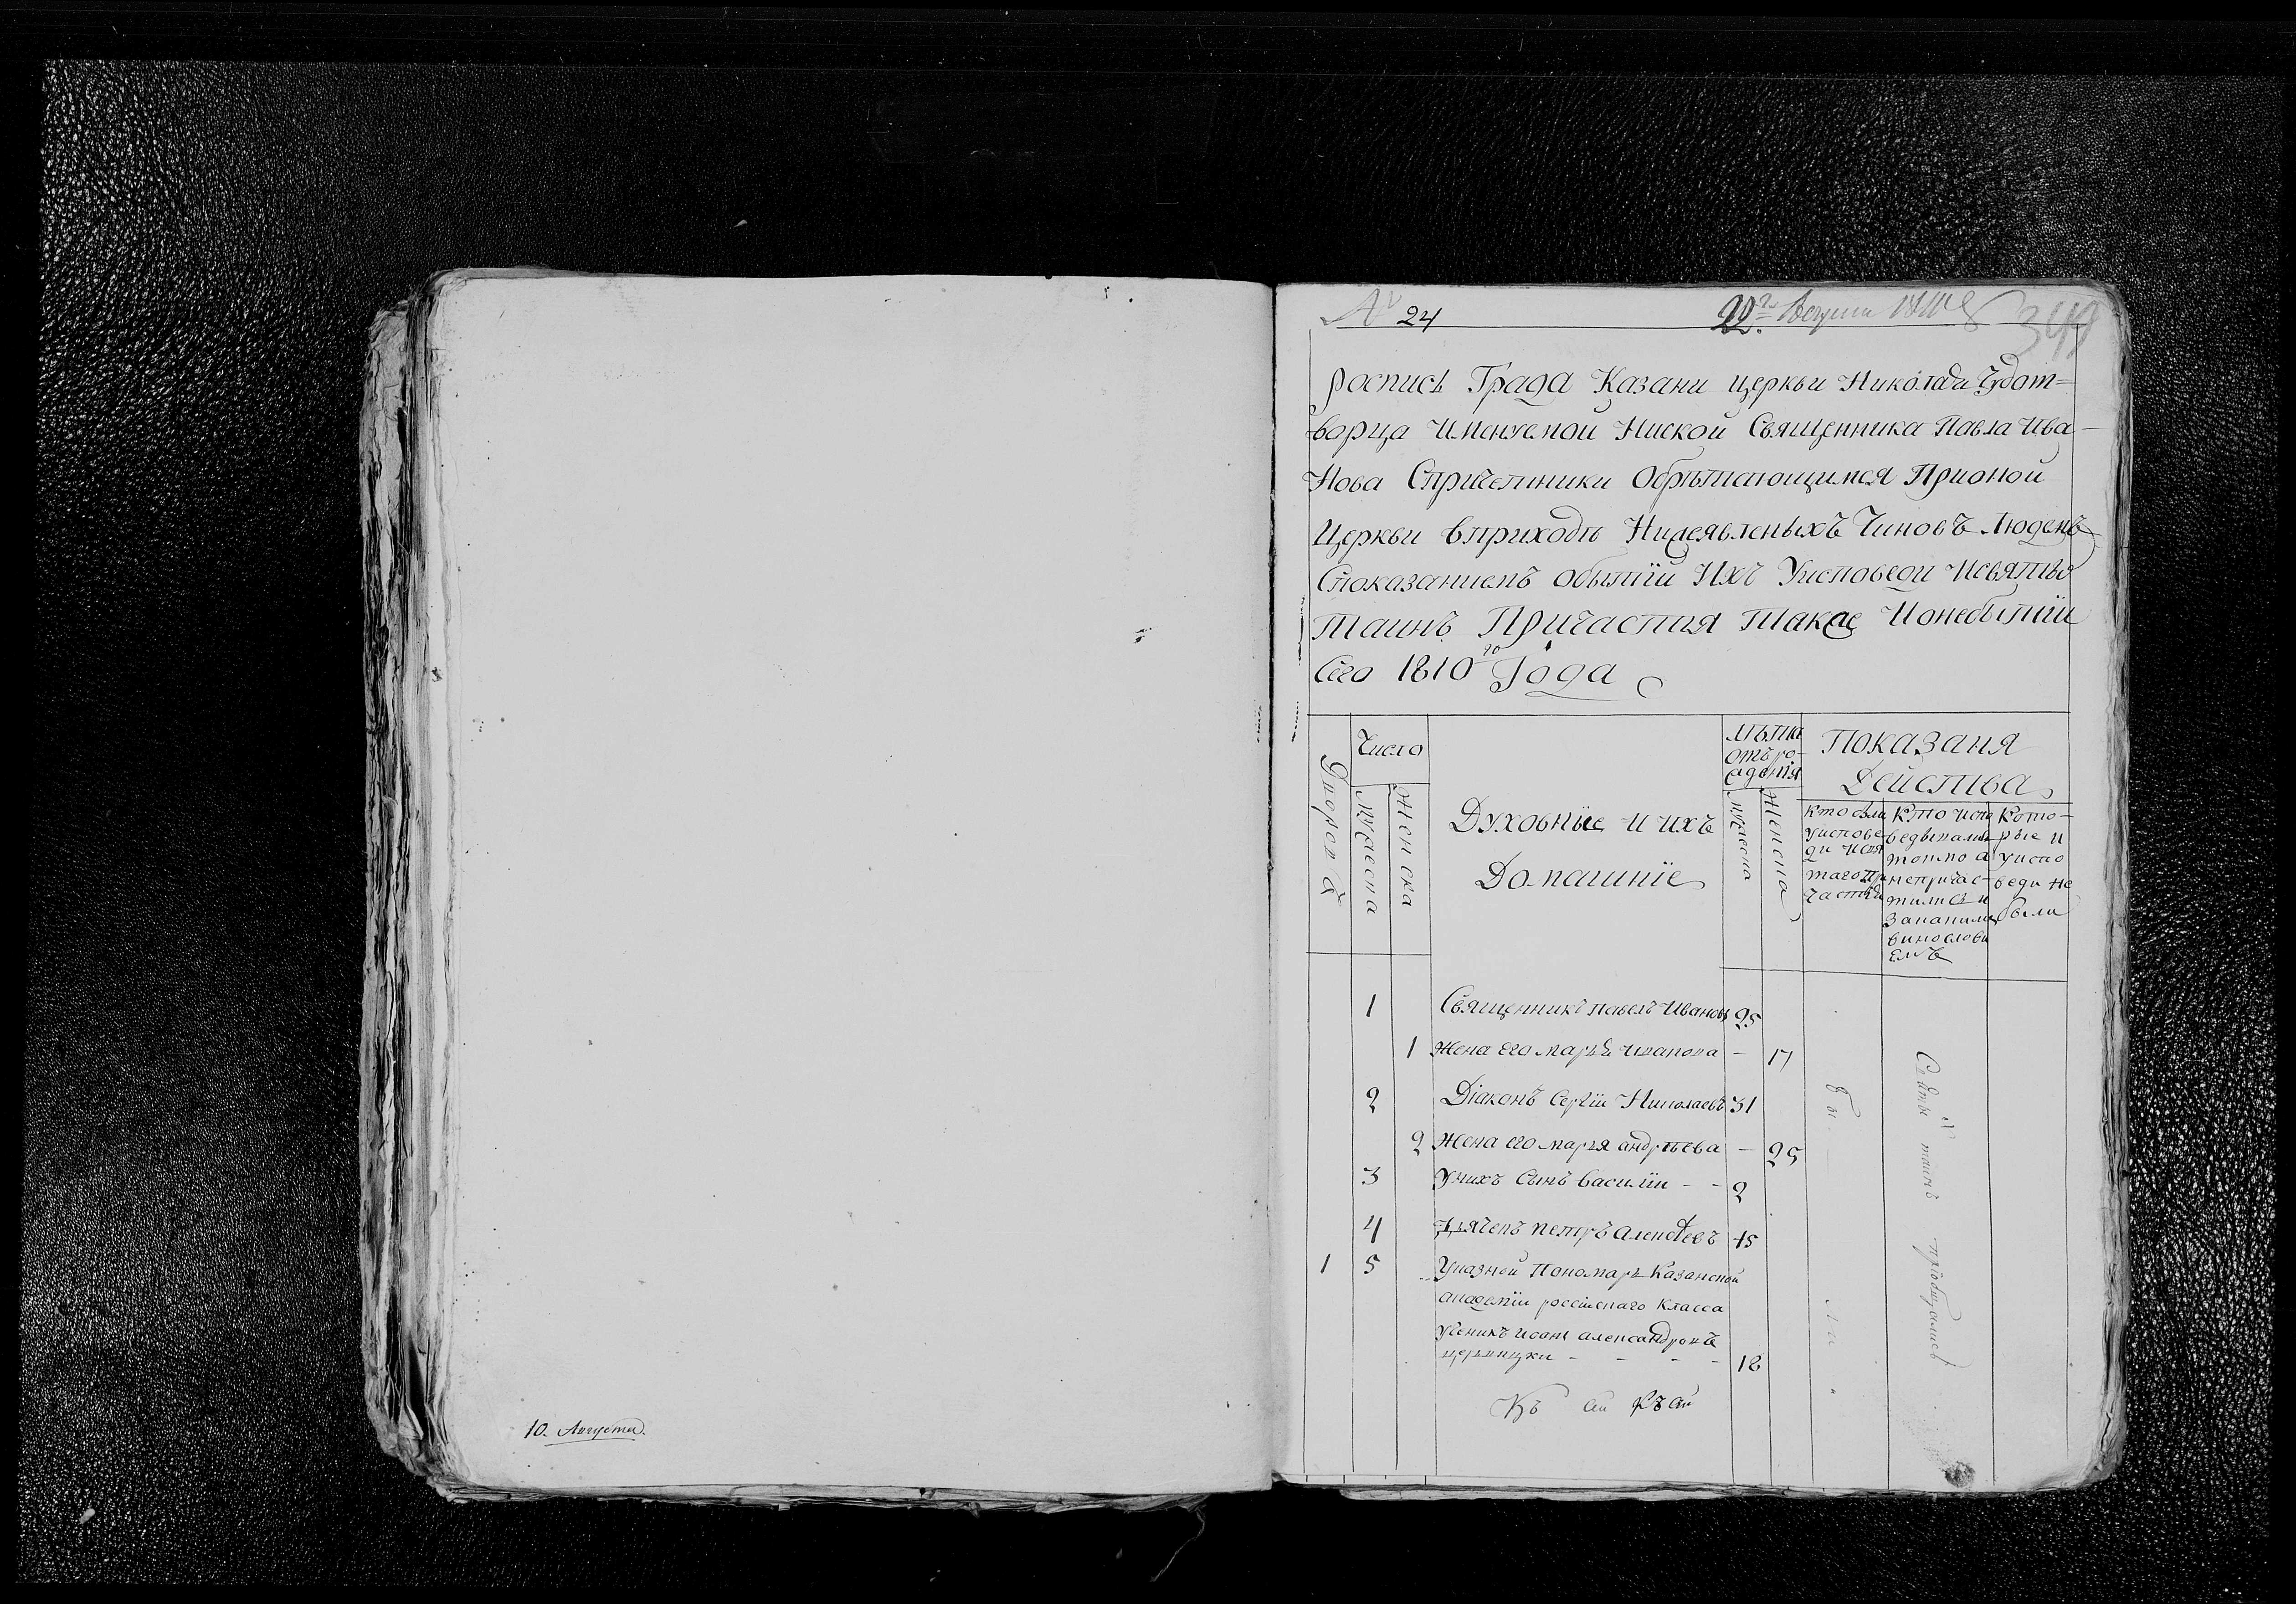 10. Августа.
№ 24
22го Августа 1810 349
роспись Града Казани церкьви Николая Чудот=
ворца Именуемой Ниской Священника Павла Ива-
нова Спричетники Обрѣтающимся Прионой
Церкьви вприходѣ Нижеявленыхъ Чиновъ Людемъ
Споказаниемъ обытїи Ихъ Уисповеди Исвятыхъ
Таинъ Причастия Также Ионебытїи
Сего 1810го Года
Число
Мужеска
Женска
Духовныe и ихъ
Домашнїе
лѣта
отъ ро-
жденїя
мужеска
женска
Показаня
Действа
кто были
уиспове-
ди исвя
таго при
частїя
кто испо
ведывались
токмо а
непричас-
тились и
закакимъ
винослови
емъ
Кото-
рые и
уиспо
веди не
были
1 Священникъ павелъ Ивановъ 25
1 Жена его марья Иванова - 17
2 Дїаконъ Сергїи Николаевъ 31
2 Жена его марья андрѣева - 25
3 Унихъ Сынъ василїи - - 2
4 Дьячекъ петръ Алексѣевъ 45
1 5 Указной Пономарь Казанской
Академїи россїискаго класса
ученикъ иоанъ александровъ
- - - - 18
бы
ли
Святы таинъ прїобщались